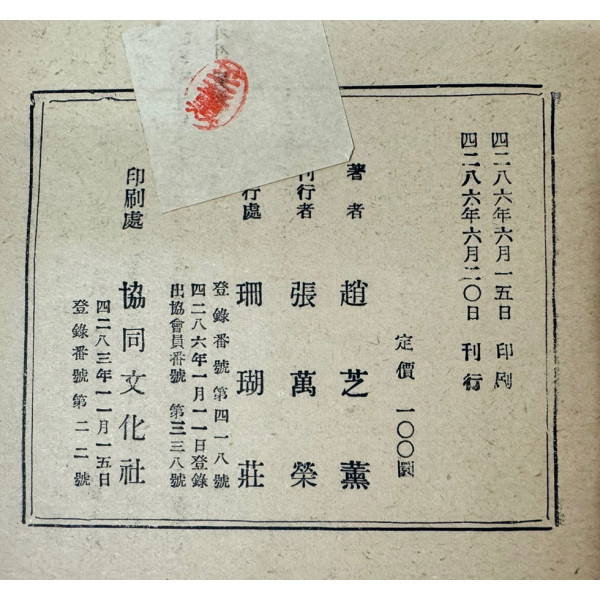 四二八六年六月一五日 印刷
四二八六年六月二〇日 刊行
定價 一〇〇圜
著者 趙芝薰
刊行者 張萬榮
行處 珊瑚莊
登錄番號第四一八號
四二八六年一月一一日登錄
出協會員番號 第三三八號
印刷處 協同文化社
四二八三年一一月一五日
登錄番號第二二號